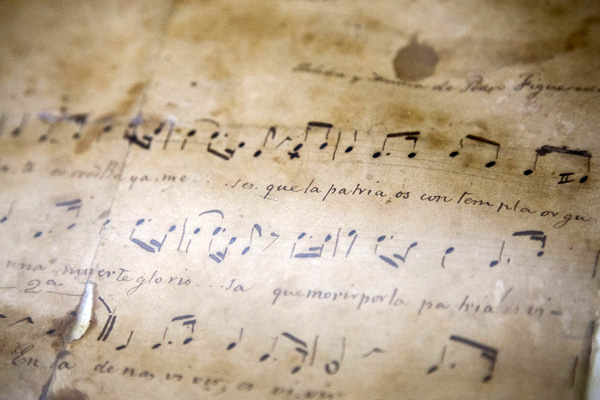 Letra y Música de Pedro Figueredo
ya, me... ses. que la patria os con tem pla or gu
una muerte glo rio... sa que morir por la pa tria es vi-
2ª
En ca de nas vi vir, es vi vir